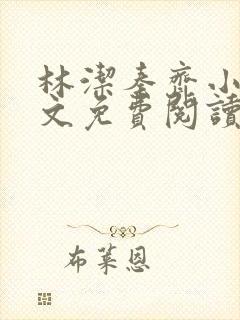 林潔秦齊小
文免費閱讀
布萊恩